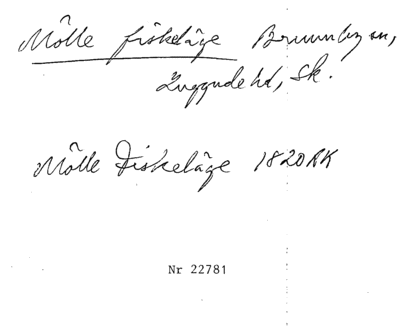 Mölle fiskeläge Brunnby sn,
Luggude hd, Sk.
Mölle Fiskeläge 1820 RK
Nr 22781